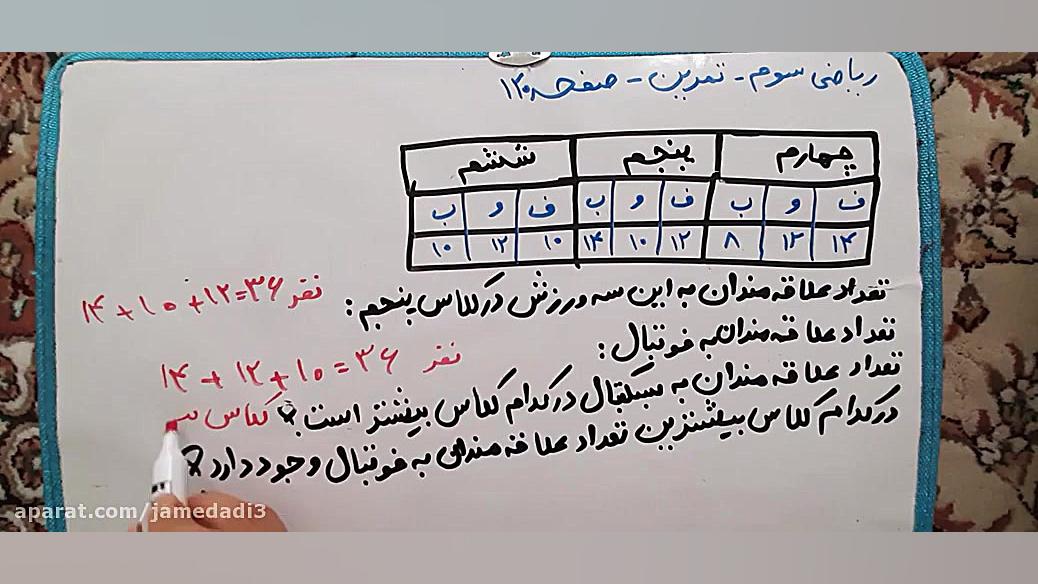 ریاضی سوم - تمرین - صفحه ۱۲۰
چهارم پنجم ششم
ف و ب ف و ب ف و ب
۱۴ ۱۲ ۸ ۱۲ ۱۰ ۱۴ ۱۰ ۱۲ ۱۰
تعداد علاقه مندان به این سه ورزش در کلاس پنجم: ۱۴+۱۰+۱۲=۳۶ نفر
تعداد علاقه مندان به فوتبال: ۱۴+۱۲+۱۰=۳۶ نفر
تعداد علاقه مندان به بسکتبال در کدام کلاس بیشتر است؟ کلاس
در کدام کلاس بیشترین تعداد علاقه مندی به فوتبال وجود دارد؟
aparat.com/jamedadi3